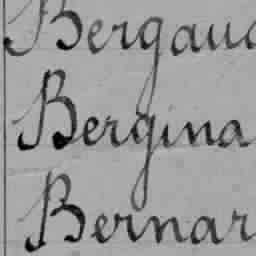 Bergaud
Bergina
Bernar